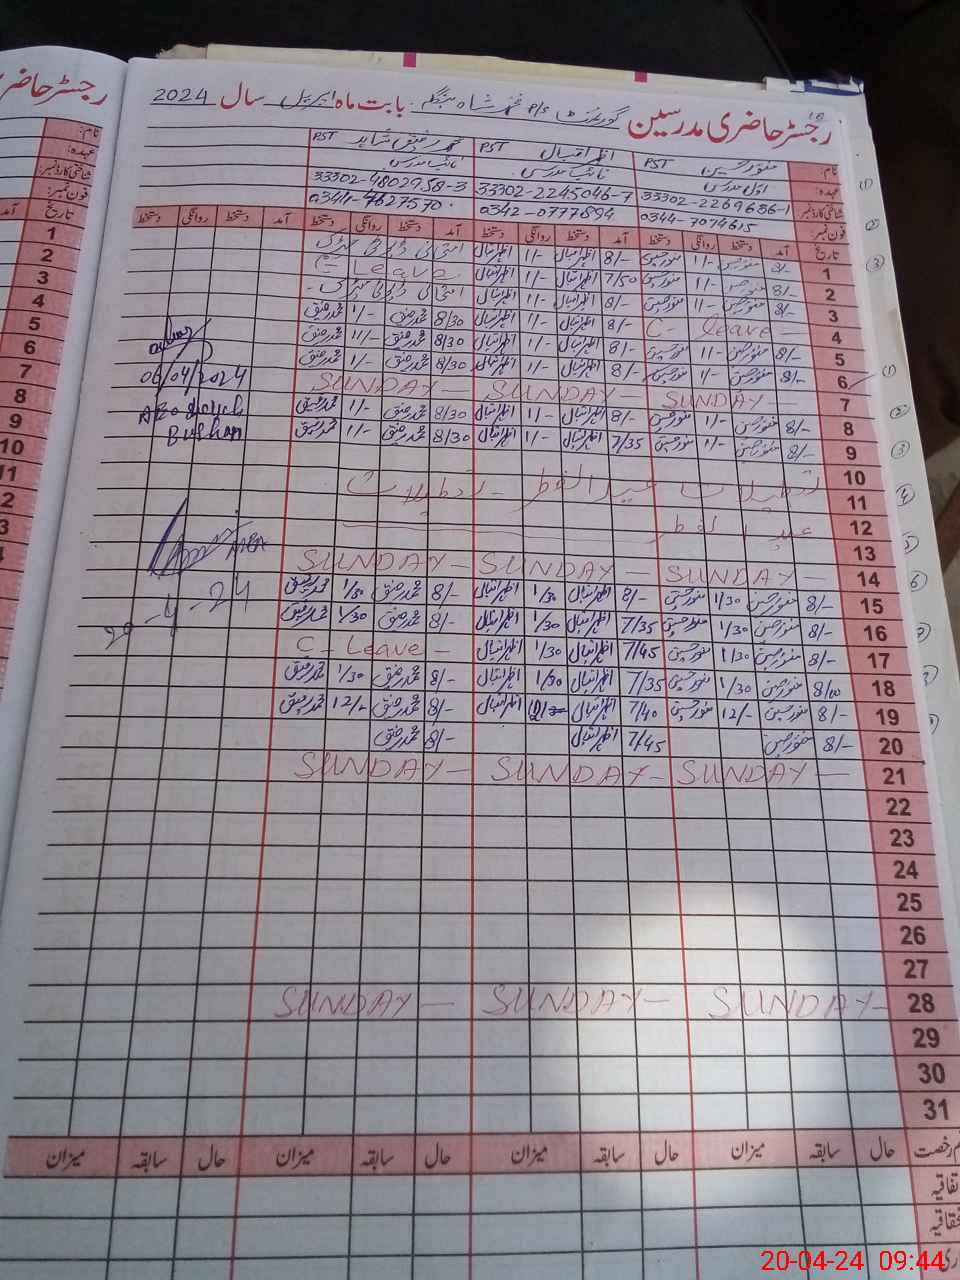 رجسٹر حاضری مدرسین گورنمنٹ P/S بابت ماہ اپریل سال 2024
نام: منور حسین PST اظہر اقبال PST محمد رفیق شاہد PST
عہدہ: اول مدرس نائب مدرس نائب مدرس
شناختی کارڈ نمبر: 33302-2269686-1 33302-2245046-7 33302-4802958-3
فون نمبر: 0344-7074615 0342-0777894 0344-7627570
تاریخ آمد دستخط روانگی دستخط آمد دستخط روانگی دستخط آمد دستخط روانگی دستخط آمد دستخط روانگی دستخط
1 8/- منور حسین 1/- منور حسین 8/- اظہر اقبال 1/- اظہر اقبال
2 8/- منور حسین 11/- منور حسین 7/50 اظہر اقبال 11/- اظہر اقبال C- Leave
3 8/- منور حسین 11/- منور حسین 8/- اظہر اقبال 11/- اظہر اقبال
4 C- Leave - 8/- اظہر اقبال 1/- اظہر اقبال 8/30 محمد رفیق 1/- محمد رفیق
5 8/- منور حسین 11/- منور حسین 8/- اظہر اقبال 11/- اظہر اقبال 8/30 محمد رفیق 11/- محمد رفیق
6 8/- منور حسین 1/- منور حسین 8/- اظہر اقبال 1/- اظہر اقبال 8/30 محمد رفیق 1/- محمد رفیق
7 SUNDAY - SUNDAY - SUNDAY -
8 8/- منور حسین 1/- منور حسین 8/- اظہر اقبال 1/- اظہر اقبال 8/30 محمد رفیق 1/- محمد رفیق
9 8/- منور حسین 1/- منور حسین 7/35 اظہر اقبال 1/- اظہر اقبال 8/30 محمد رفیق 1/- محمد رفیق
06/04/2024
10
11 تعطیلات عید الفطر - تعطیلات
12 عید الفطر
13
14 SUNDAY - SUNDAY - SUNDAY -
15 8/- منور حسین 1/30 منور حسین 8/- اظہر اقبال 1/30 اظہر اقبال 8/- محمد رفیق 1/30 محمد رفیق
16 8/- منور حسین 1/30 منور حسین 7/35 اظہر اقبال 1/30 اظہر اقبال 8/- محمد رفیق 1/30 محمد رفیق
17 8/- منور حسین 1/30 منور حسین 7/45 اظہر اقبال 1/30 اظہر اقبال C- Leave -
18 8/00 منور حسین 1/30 منور حسین 7/35 اظہر اقبال 1/30 اظہر اقبال 8/- محمد رفیق 1/30 محمد رفیق
19 8/- منور حسین 12/- منور حسین 7/40 اظہر اقبال 12/- اظہر اقبال 8/- محمد رفیق 12/- محمد رفیق
20 8/- منور حسین 7/45 اظہر اقبال 8/- محمد رفیق
20-4-24
21 SUNDAY - SUNDAY - SUNDAY -
22
23
24
25
26
27
28 SUNDAY - SUNDAY - SUNDAY -
29
30
31
رخصت حال سابقہ میزان حال سابقہ میزان حال سابقہ میزان حال سابقہ میزان
20-04-24 09:44